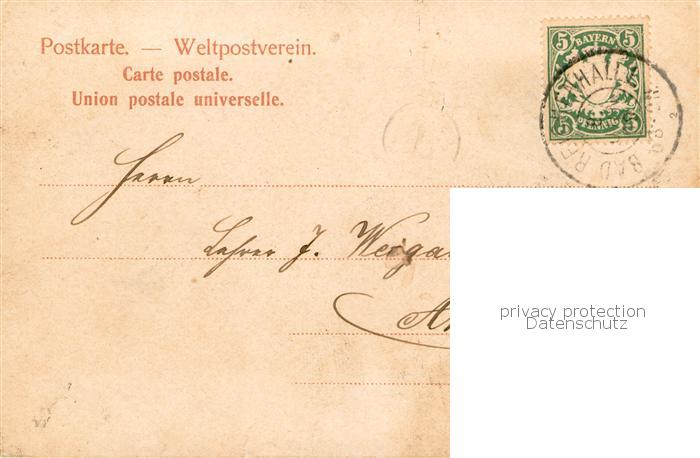 Postkarte. — Weltpostverein.
Carte postale.
Union postale universelle.
5 BAYERN 5
5 PFENNIG 5
BAD REICHENHALL
Herrn
Lehrer J.
privacy protection
Datenschutz